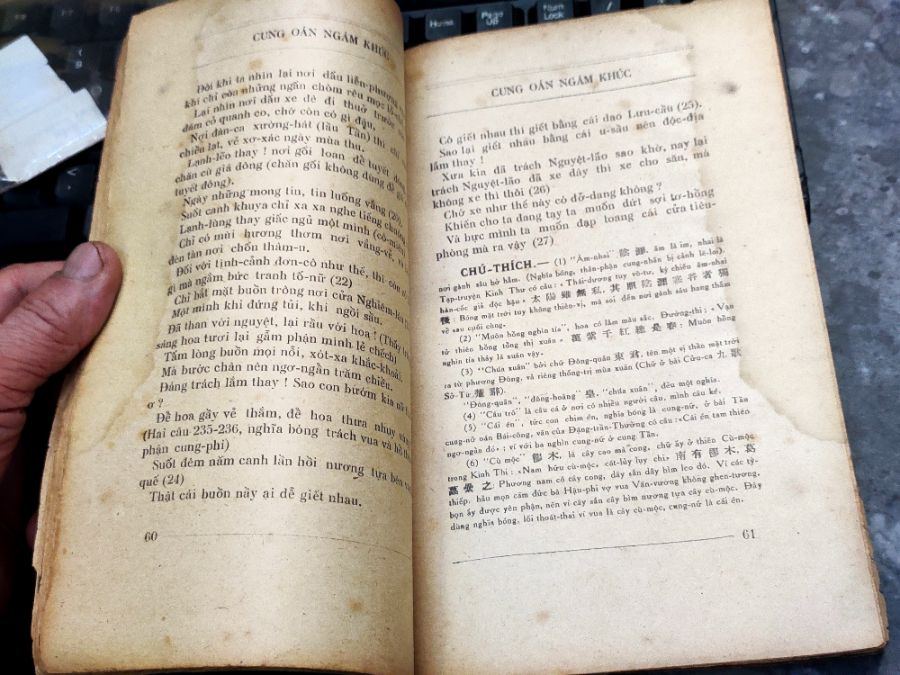 CUNG OÁN NGÂM KHÚC
Đôi khi ta nhìn lại nơi dấu liễn-phượng
khi chỉ còn những ngấn chòm rêu mọc lỗ-chỗ
Lại nhìn nơi dấu xe dê đi thuở trước
đám cỏ quanh co, chớ còn có gì đâu.
Nơi đàn-ca xướng-hát (lầu Tần) thì
chiều lạt, vẻ xơ-xác ngày mùa thu.
Lạnh-lẽo thay ! nơi gối loan để tuyết đóng
chăn cù giá đông (chăn gối không dùng để
tuyết đông).
Ngày những mong tin, tin luống vắng (20)
Suốt canh khuya chỉ xa xa nghe tiếng chuông
Lạnh-lùng thay giấc ngủ một mình
Chỉ có mùi hương thơm nơi vắng-vẻ,
đèn tàn nơi chốn thâm-u.
Đối với tình-cảnh đơn-cô như thế, thì còn
gì mà ngắm bức tranh tố-nữ (22)
Chỉ bắt mặt buồn trông nơi cửa Nghiêm-lâu
Một mình khi đứng tủi, khi ngồi sầu.
Đã than với nguyệt, lại rầu với hoa ! (Thấy
sáng hoa tươi lại gẫm phận mình lẽ chếch)
Tấm lòng buồn mọi nỗi, xót-xa khắc-khoải.
Mà bước chân nên ngơ-ngẩn trăm chiều.
Đáng trách lắm thay ! Sao con bướm kia nỡ
ơ ?
Để hoa gầy vẻ thắm, để hoa thưa nhụy
(Hai câu 235-236, nghĩa bóng trách vua và hờ
phận cung-phi)
Suốt đêm năm canh lần hồi nương tựa bên
quế (24)
Thật cái buồn này ai dễ giết nhau.
60
CUNG OÁN NGÂM KHÚC
Có giết nhau thì giết bằng cái dao Lưu-cầu (25).
Sao lại giết nhau bằng cái u-sầu nên độc-địa
lắm thay !
Xưa kia đã trách Nguyệt-lão sao khờ, nay lại
trách Nguyệt-lão đã xe dây thì xe cho săn, mà
không xe thì thôi (26)
Chớ xe như thế này có dở-dang không ?
Khiến cho ta đang tay ta muốn dứt sợi tơ-hồng
Và bực mình ta muốn đạp loang cái cửa tiêu-
phòng mà ra vậy (27)
CHÚ-THÍCH.— (1) "Âm-nhai" 陰 , âm là im, nhai là
nơi gành sâu bờ hẳm. (Nghĩa bóng, thân-phận cung-nhân bị cảnh lẻ-loi).
Tập-truyện Kinh Thư có câu : « Thái-dương tuy vô-tư, kỳ chiếu âm-nhai
hàn-cốc giả độc hậu » 太陽雖無私,其照陰 者獨
後: Bóng mặt trời tuy không thiên-», mà soi đến nơi gành sâu hang thẳm
về sau cuối cùng.
(2) "Muôn hồng nghìn tía", hoa có lắm màu sắc, Đường-thi : « Vạn
tử thiên hồng tổng thị xuân » 萬紫千紅總是春: Muôn hồng
nghìn tía thảy là xuân vậy.
(3) "Chúa xuân" bởi chữ Đông-quân 東君, tên một vị thần mặt trời
ra từ phương Đông, và riêng thống-trị mùa xuân (Chữ ở bài Cửu-ca 九歌
Sở-Từ 楚辭).
"Đông-quân", "đông-hoàng" 皇, "chúa xuân", đều một nghĩa.
(4) "Câu trổ" là câu cá ở nơi có nhiều người câu, mình câu ké.
(5) "Cái én", tức con chim én, nghĩa bóng là cung-nữ, ở bài Tần
cung-nữ oán Bái-công, văn của Đặng-trần-Thường có câu : «Cái én tam thiên
ngơ-ngáo đó» ; ví với ba nghìn cung-nữ ở cung Tần.
(6) "Cù mộc" 木, là cây cao mà cong, chữ ấy ở thiên Cù-mộc
trong Kinh Thi : «Nam hữu cù-mộc, cát-lũy lụy chi» 南有 木,葛
之. Phương nam có cây cong, dây sắn dây bìm leo đó. Ví các tỳ-
thiếp, hầu mọn cảm đức bà Hậu-phi vợ vua Văn-vương không ghen-tương,
bọn ấy được yên phận, nên ví cây sắn cây bìm nương tựa cây cù-mộc. Đây
dùng nghĩa bóng, lối thoát-thai ví vua là cây cù-mộc, cung-nữ là cái én-
61